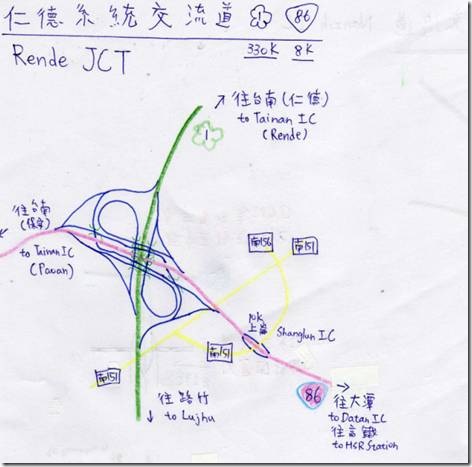 仁德系統交流道 1 86
330K 8K
Rende JCT
往台南(仁德)
to Tainan IC
(Rende)
1
往台南
(保安)
to Tainan IC
(Paoan)
南156
南151
10K
上崙
Shanglun IC
南151
南151
86
往路竹
to Lujhu
往大潭
to Datan IC
往高鐵
to HSR Station